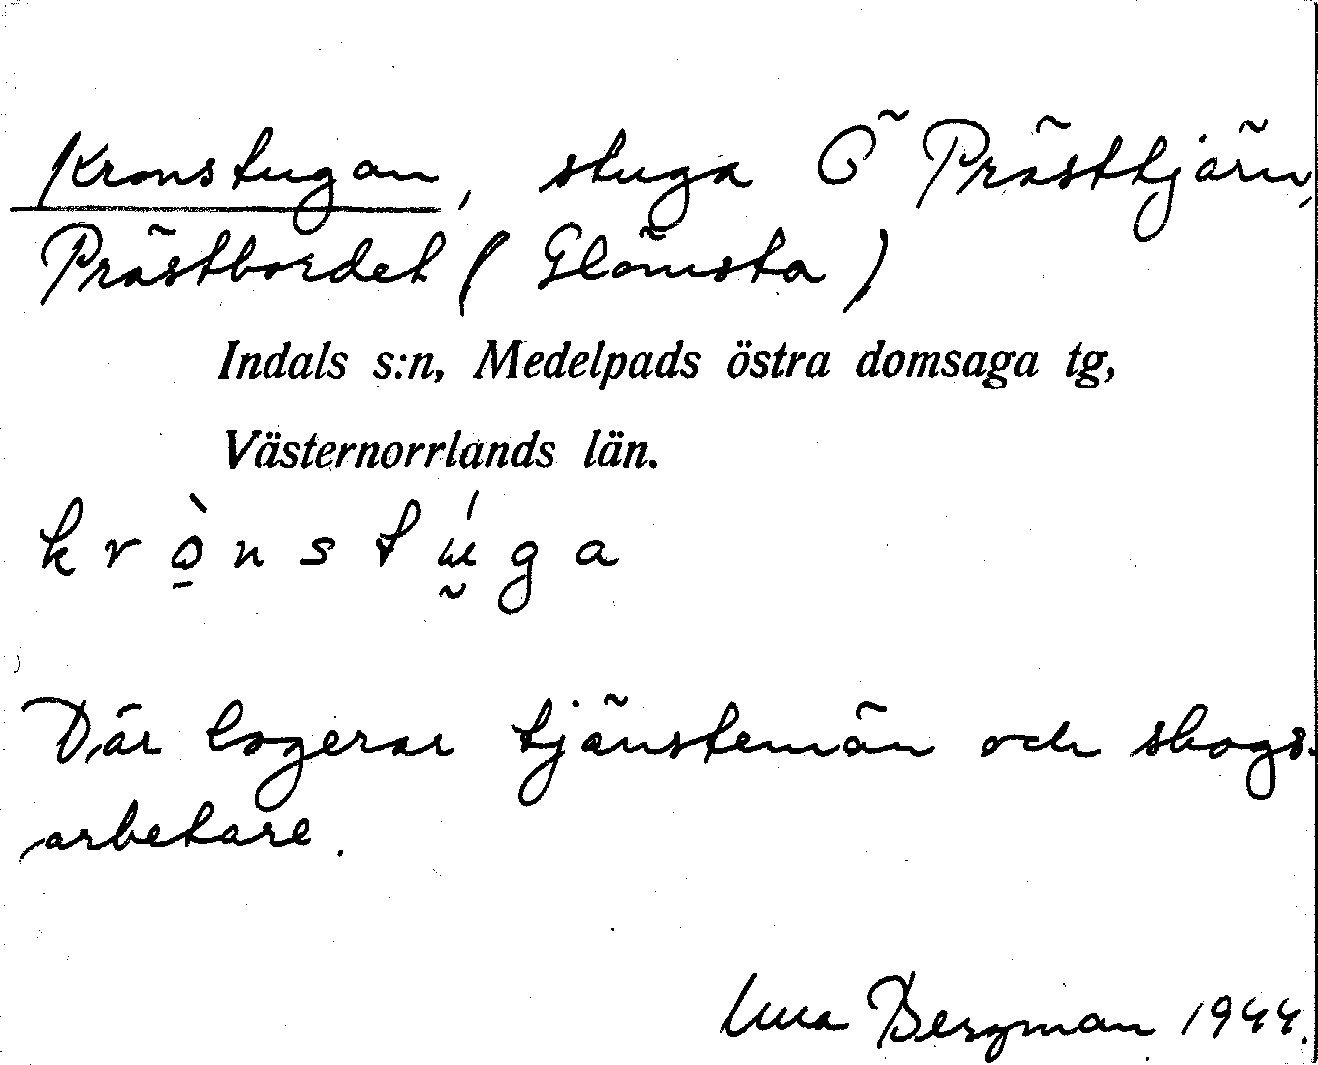 Kronstugan, stuga Ö Prästtjärn,
Prästbordet (Glömsta)
Indals s:n, Medelpads östra domsaga tg,
Västernorrlands län.
krò̱nstṵ́ga
Där logerar tjänstemän och skogs-
arbetare.
Bergman 1944.